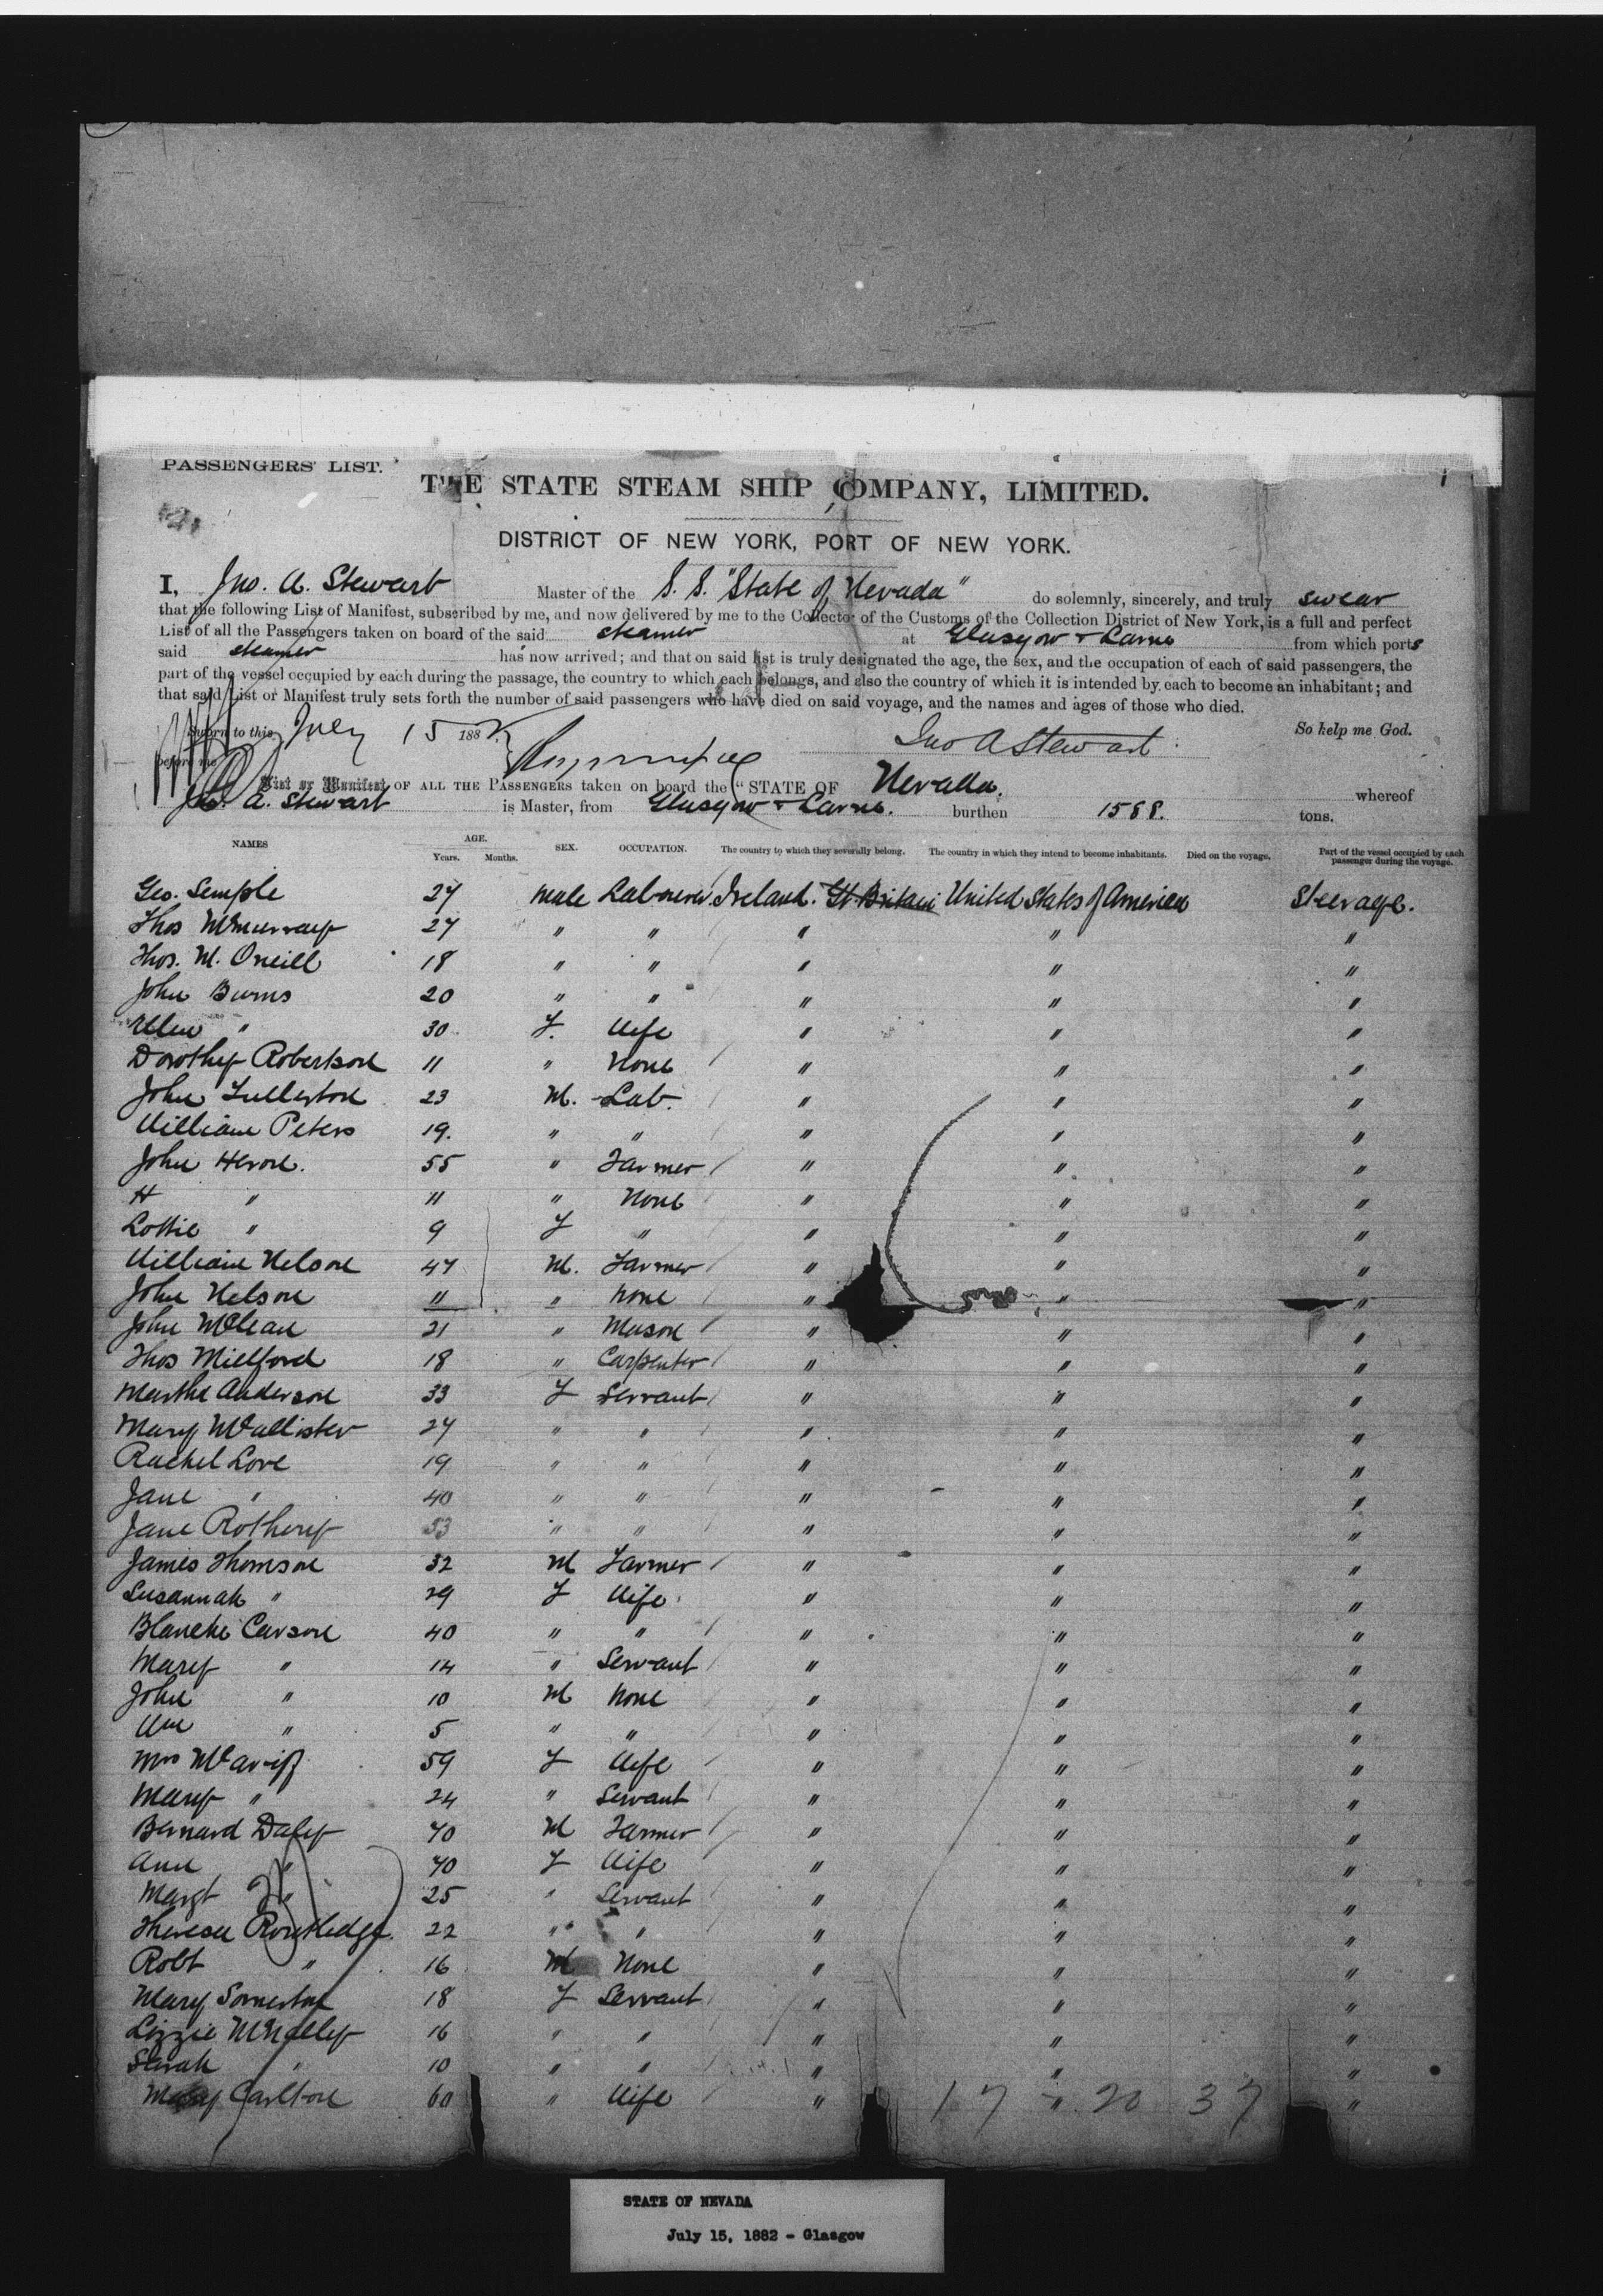 PASSENGERS' LIST.
THE STATE STEAM SHIP COMPANY, LIMITED.
DISTRICT OF NEW YORK, PORT OF NEW YORK.
I, Jno. A. Stewart Master of the S. S. "State of Nevada" do solemnly, sincerely, and truly swear
that the following List of Manifest, subscribed by me, and now delivered by me to the Collector of the Customs of the Collection District of New York, is a full and perfect
List of all the Passengers taken on board of the said steamer at Glasgow & Larne from which ports
said steamer has now arrived; and that on said list is truly designated the age, the sex, and the occupation of each of said passengers, the
part of the vessel occupied by each during the passage, the country to which each belongs, and also the country of which it is intended by each to become an inhabitant; and
that said List or Manifest truly sets forth the number of said passengers who have died on said voyage, and the names and ages of those who died.
Sworn to this July 15 1882 Jno A Stewart So help me God.
before me
List or Manifest OF ALL THE PASSENGERS taken on board the "STATE OF Nevada. whereof
Jno. A. Stewart is Master, from Glasgow & Larne. burthen 1588. tons.
NAMES AGE. Years. Months. SEX. OCCUPATION. The country to which they severally belong. The country in which they intend to become inhabitants. Died on the voyage. Part of the vessel occupied by each passenger during the voyage.
Geo. Semple 27 male Labourer Ireland. Gt Britain United States of America Steerage.
Thos McMurray 27 " " " " "
Thos. M. Oneill 18 " " " " "
John Burns 20 " " " " "
Ellen " 30 F. Wife " " "
Dorothy Robertson 11 " None " " "
John Fullerton 23 M. Lab. " " "
William Peters 19. " " " " "
John Heron. 55 " Farmer " " "
H " 11 " None " " "
Lottie " 9 F " " " "
William Nelson 47 M. Farmer " " "
John Nelson 11 " None " " "
John McClean 21 " Mason " " "
Thos Millford 18 " Carpenter " " "
Martha Anderson 33 F Servant " " "
Mary McCallister 24 " " " " "
Rachel Love 19 " " " " "
Jane " 40 " " " " "
Jane Rothery 53 " " " " "
James Thomson 32 M Farmer " " "
Susannah " 29 F Wife " " "
Blanche Carson 40 " " " " "
Mary " 14 " Servant " " "
John " 10 M None " " "
Wm " 5 " " " " "
Mrs 59 F Wife " " "
Mary " 24 " Servant " " "
Bernard Daley 70 M Farmer " " "
Ann " 70 F Wife " " "
Margt " 25 " Servant " " "
Theresa Routledge. 22 " " " " "
Robt " 16 M None " " "
Mary 18 F Servant " " "
Lizzie McNally 16 " " " " "
Sarah " 10 " " " " "
Mary Carlton 60 " Wife " " "
17 20 37
STATE OF NEVADA
July 15, 1882 - Glasgow